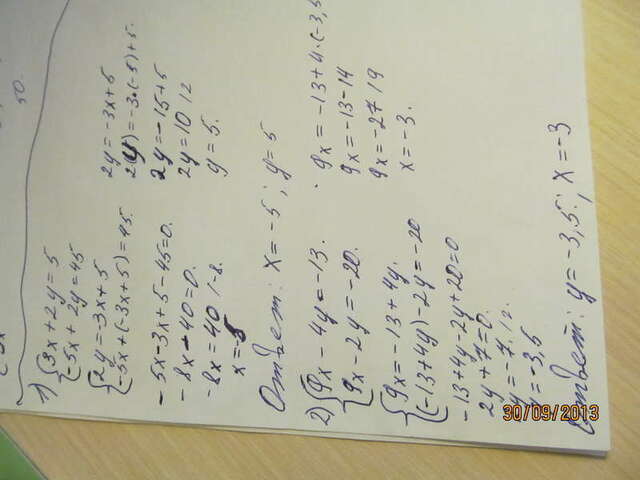 50.
1) {3x + 2y = 5
{-5x + 2y = 45
{2y = -3x + 5
{-5x + (-3x + 5) = 45.
-5x - 3x + 5 - 45 = 0.
-8x - 40 = 0.
-8x = 40 / -8.
x = -5
2y = -3x + 5
2(y) = -3·(-5) + 5.
2y = -15 + 5
2y = 10 / 2
y = 5.
Ответ: x = -5; y = 5
2) {9x - 4y = -13.
{9x - 2y = -20.
{9x = -13 + 4y.
{(-13 + 4y) - 2y = -20
-13 + 4y - 2y + 20 = 0
2y + 7 = 0.
2y = -7. / 2.
y = -3,5
9x = -13 + 4·(-3,5
9x = -13 - 14
9x = -27 / 9
x = -3.
Ответ: y = -3,5; x = -3
30/09/2013